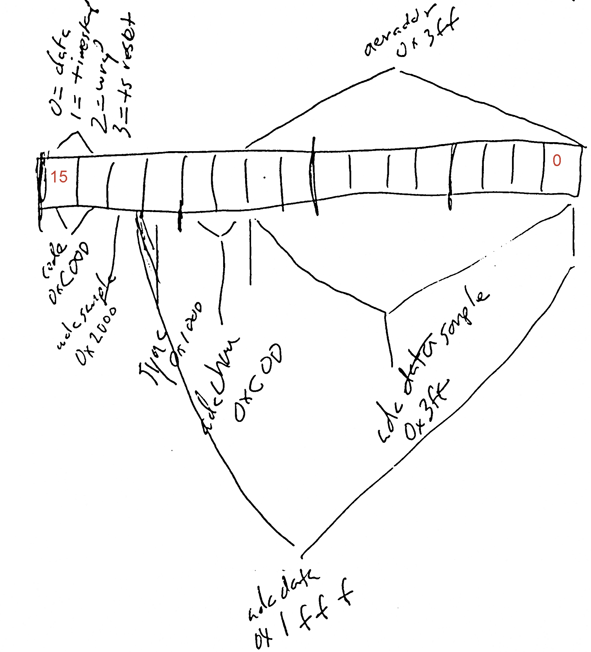 0 = data
1 = timestamp
2 = wrap
3 = ts reset
aeraddr
0x3ff
15
0
code
0xC000
adcsample
0x2000
sync
0x1000
adcchan
0xC00
adc data sample
0x3ff
adcdata
0x1fff